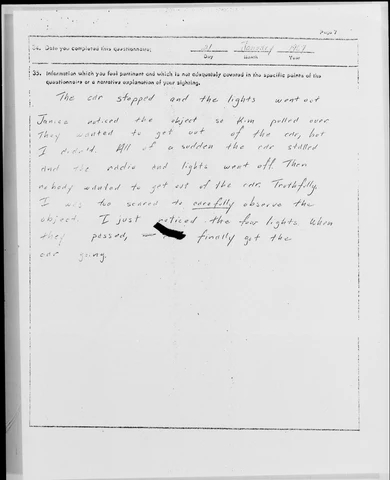 Page 7
34. Date you completed this questionnaire:
21 January 1967
Day Month Year
35. Information which you feel pertinent and which is not adequately covered in the specific points of the
questionnaire or a narrative explanation of your sighting.
The car stopped and the lights went out
Janice noticed the object so Kim pulled over
They wanted to get out of the car, but
I didn't. All of a sudden the car stalled
and the radio and lights went off. Then
nobody wanted to get out of the car. Truthfully,
I was too scared to carefully observe the
object. I just noticed the four lights. When
they passed, finally got the
car going.